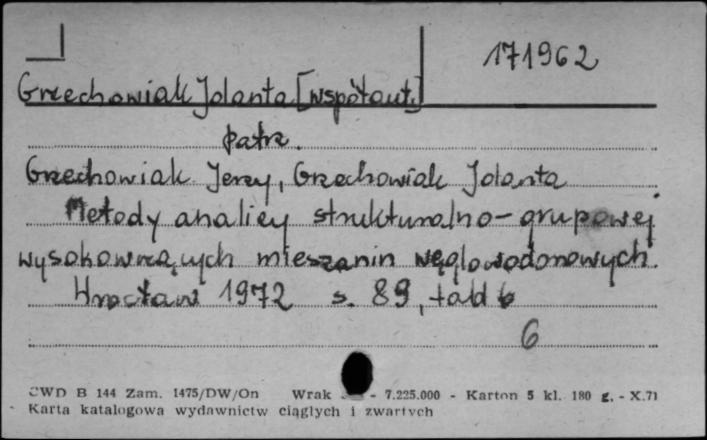 171962
Grzechowiak Jolanta [współaut.]
patrz.
Grzechowiak Jerzy, Grzechowiak Jolanta
Metody analizy strukturalno-grupowej
wysokowrzących mieszanin węglowodorowych.
Wrocław 1972 s. 89, tabl
6
CWD B 144 Zam. 1475/DW/On Wrak - 7.225.000 - Karton 5 kl. 180 g. - X.71
Karta katalogowa wydawnictw ciągłych i zwartych